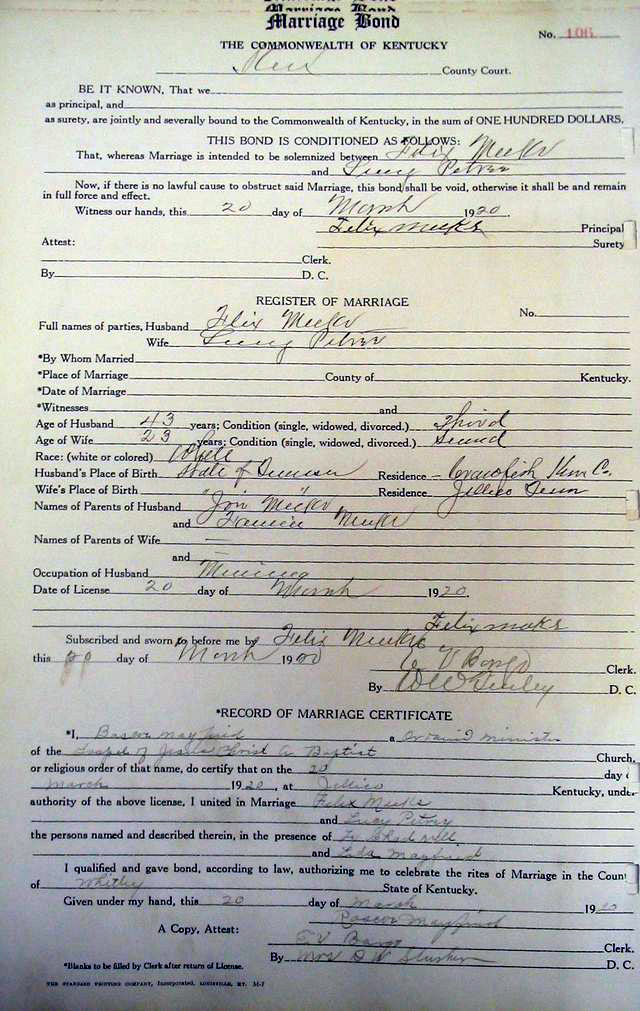 Marriage Bond
Marriage Bond
No. 106
THE COMMONWEALTH OF KENTUCKY
County Court.
BE IT KNOWN, That we
as principal, and
as surety, are jointly and severally bound to the Commonwealth of Kentucky, in the sum of ONE HUNDRED DOLLARS.
THIS BOND IS CONDITIONED AS FOLLOWS:
That, whereas Marriage is intended to be solemnized between Felix Meeks
and Lucy Petrey
Now, if there is no lawful cause to obstruct said Marriage, this bond shall be void, otherwise it shall be and remain
in full force and effect.
Witness our hands, this 20 day of March 1920.
Felix meeks Principal
Attest: Surety
Clerk.
By D. C.
REGISTER OF MARRIAGE
No.
Full names of parties, Husband Felix Meeks
Wife Lucy Petrey
*By Whom Married
*Place of Marriage County of Kentucky.
*Date of Marriage
*Witnesses and
Age of Husband 43 years; Condition (single, widowed, divorced.) Third
Age of Wife 23 years; Condition (single, widowed, divorced.) Second
Race: (white or colored) White
Husband's Place of Birth State of Residence Crawfish Co.
Wife's Place of Birth " " Residence Jellico Tenn
Names of Parents of Husband Jim Meeks
and Meeks
Names of Parents of Wife
and
Occupation of Husband Mining
Date of License 20 day of March 1920.
Felix meeks
Subscribed and sworn to before me by Felix Meeks
this 20 day of March 1920
Clerk.
By D. C.
*RECORD OF MARRIAGE CERTIFICATE
*I, Mayfield a minister
of the Gospel of Jesus Christ Baptist Church,
or religious order of that name, do certify that on the 20 day
March 1920, at Jellico Kentucky, under
authority of the above license, I united in Marriage Felix Meeks
and Lucy Petrey
the persons named and described therein, in the presence of
and Mayfield
I qualified and gave bond, according to law, authorizing me to celebrate the rites of Marriage in the Count
of Whitley State of Kentucky.
Given under my hand, this 20 day of March 1920
Mayfield
A Copy, Attest: Clerk.
By Mrs D. C.
*Blanks to be filled by Clerk after return of License.
THE STANDARD PRINTING COMPANY, Incorporated, LOUISVILLE, KY. M-7